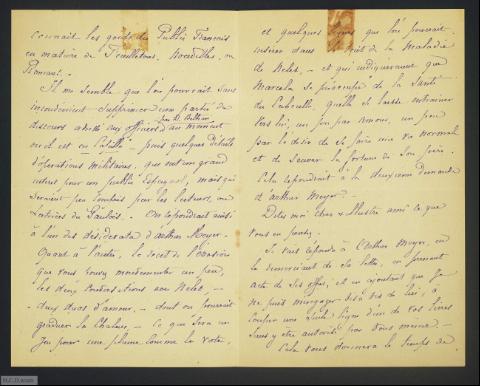 connait les goûts du Public Français
en matière de Feuilletons, Nouvelles, ou
Romans. -
Il me semble que l'on pourrait sans
inconvénient supprimer une partie du
discours adressé aux officiers
par D. Arthur
au moment
où il est en
- puis quelques détails
d'opérations militaires, qui ont un grand
intérêt pour un public Espagnol, mais qui
seraient peu pour les lecteurs, ou
Lectrices du Gaulois. - On répondrait ainsi
à l'un des desiderata d'Arthur Meyer. -
Quant à l'autre, le
que vous pouvez un peu,
les deux conversations avec -
deux duos d'amour, - dont on pourrait
graduer la Chaleur, - Ce qui sera un
jeu pour une plume comme la votre,
et quelques lignes que l'on pourrait
insérer dans le récit de la Maladie
de - et qui indiqueraient que
Marcela se préoccupe de la Santé
du qu'elle se laisse entrainer
vers lui, un peu par Amour, un peu
par le désir de se faire une vie normale
et de sauver la fortune de son père.
Cela répondrait à la deuxième Demande
d'Arthur Meyer. -
Dites moi cher & Illustre ami ce que
vous en pensez. -
Je vais répondre à Arthur Meyer, en
le remerciant de sa lettre, en prenant
acte de ses offres, et en ajoutant que Je
ne puis m'engager vis à vis de lui, à
couper une seule ligne d'un de vos livres
sans y être autorisé par Vous même. -
Cela vous donnera le temps de
M.C.D. 2020